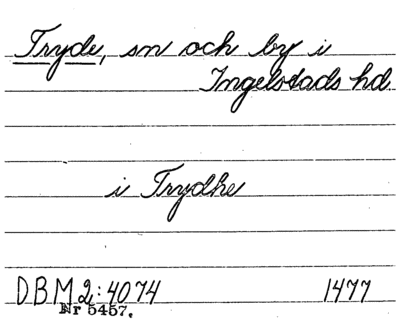 Tryde, sn och by i
Ingelstads hd.
i Trydhe
D.B.M 2:4074 1477
Nr 5457.